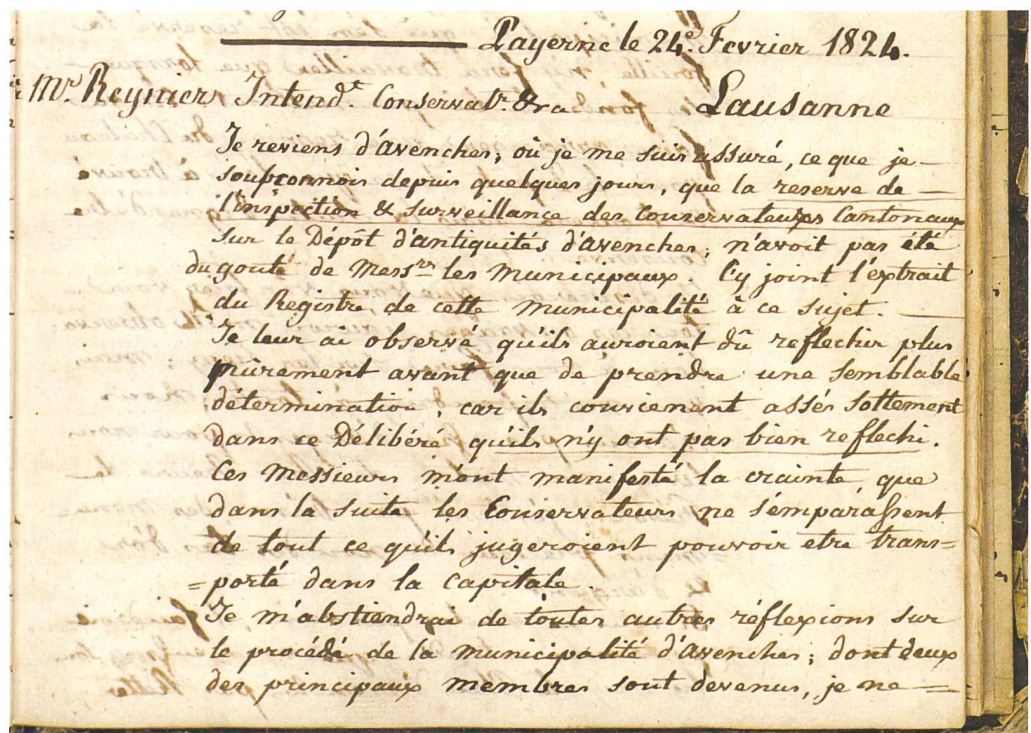 Payerne le 24e. Fevrier 1824.
Mr. Reynier Intendt. Conservatr. &ra Lausanne
Je reviens d'avenches, où je me suis assuré, ce que je
soupçonnois depuis quelques jours, que la reserve de
l'inspection & surveillance des Conservateurs Cantonaux
sur le Dépôt d'antiquités d'avenches, n'avoit pas été
du gouté de Messrs les Municipaux. Cy joint l'extrait
du Registre de cette municipalité à ce sujet.
Je leur ai observé qu'ils auroient dû reflechir plus
mûrement avant que de prendre une semblable
détermination, car ils conviennent assés sottement
dans ce Délibéré qu'ils n'y ont pas bien reflechi.
Ces Messieurs m'ont manifesté la crainte que
dans la suite les Conservateurs ne s'emparassent
de tout ce qu'ils jugeroient pouvoir etre trans=
=porté dans la Capitale.
Je m'abstiendrai de toutes autres réflexions sur
le procédé de la municipalité d'avenches; dont deux
des principaux membres sont devenus, je ne